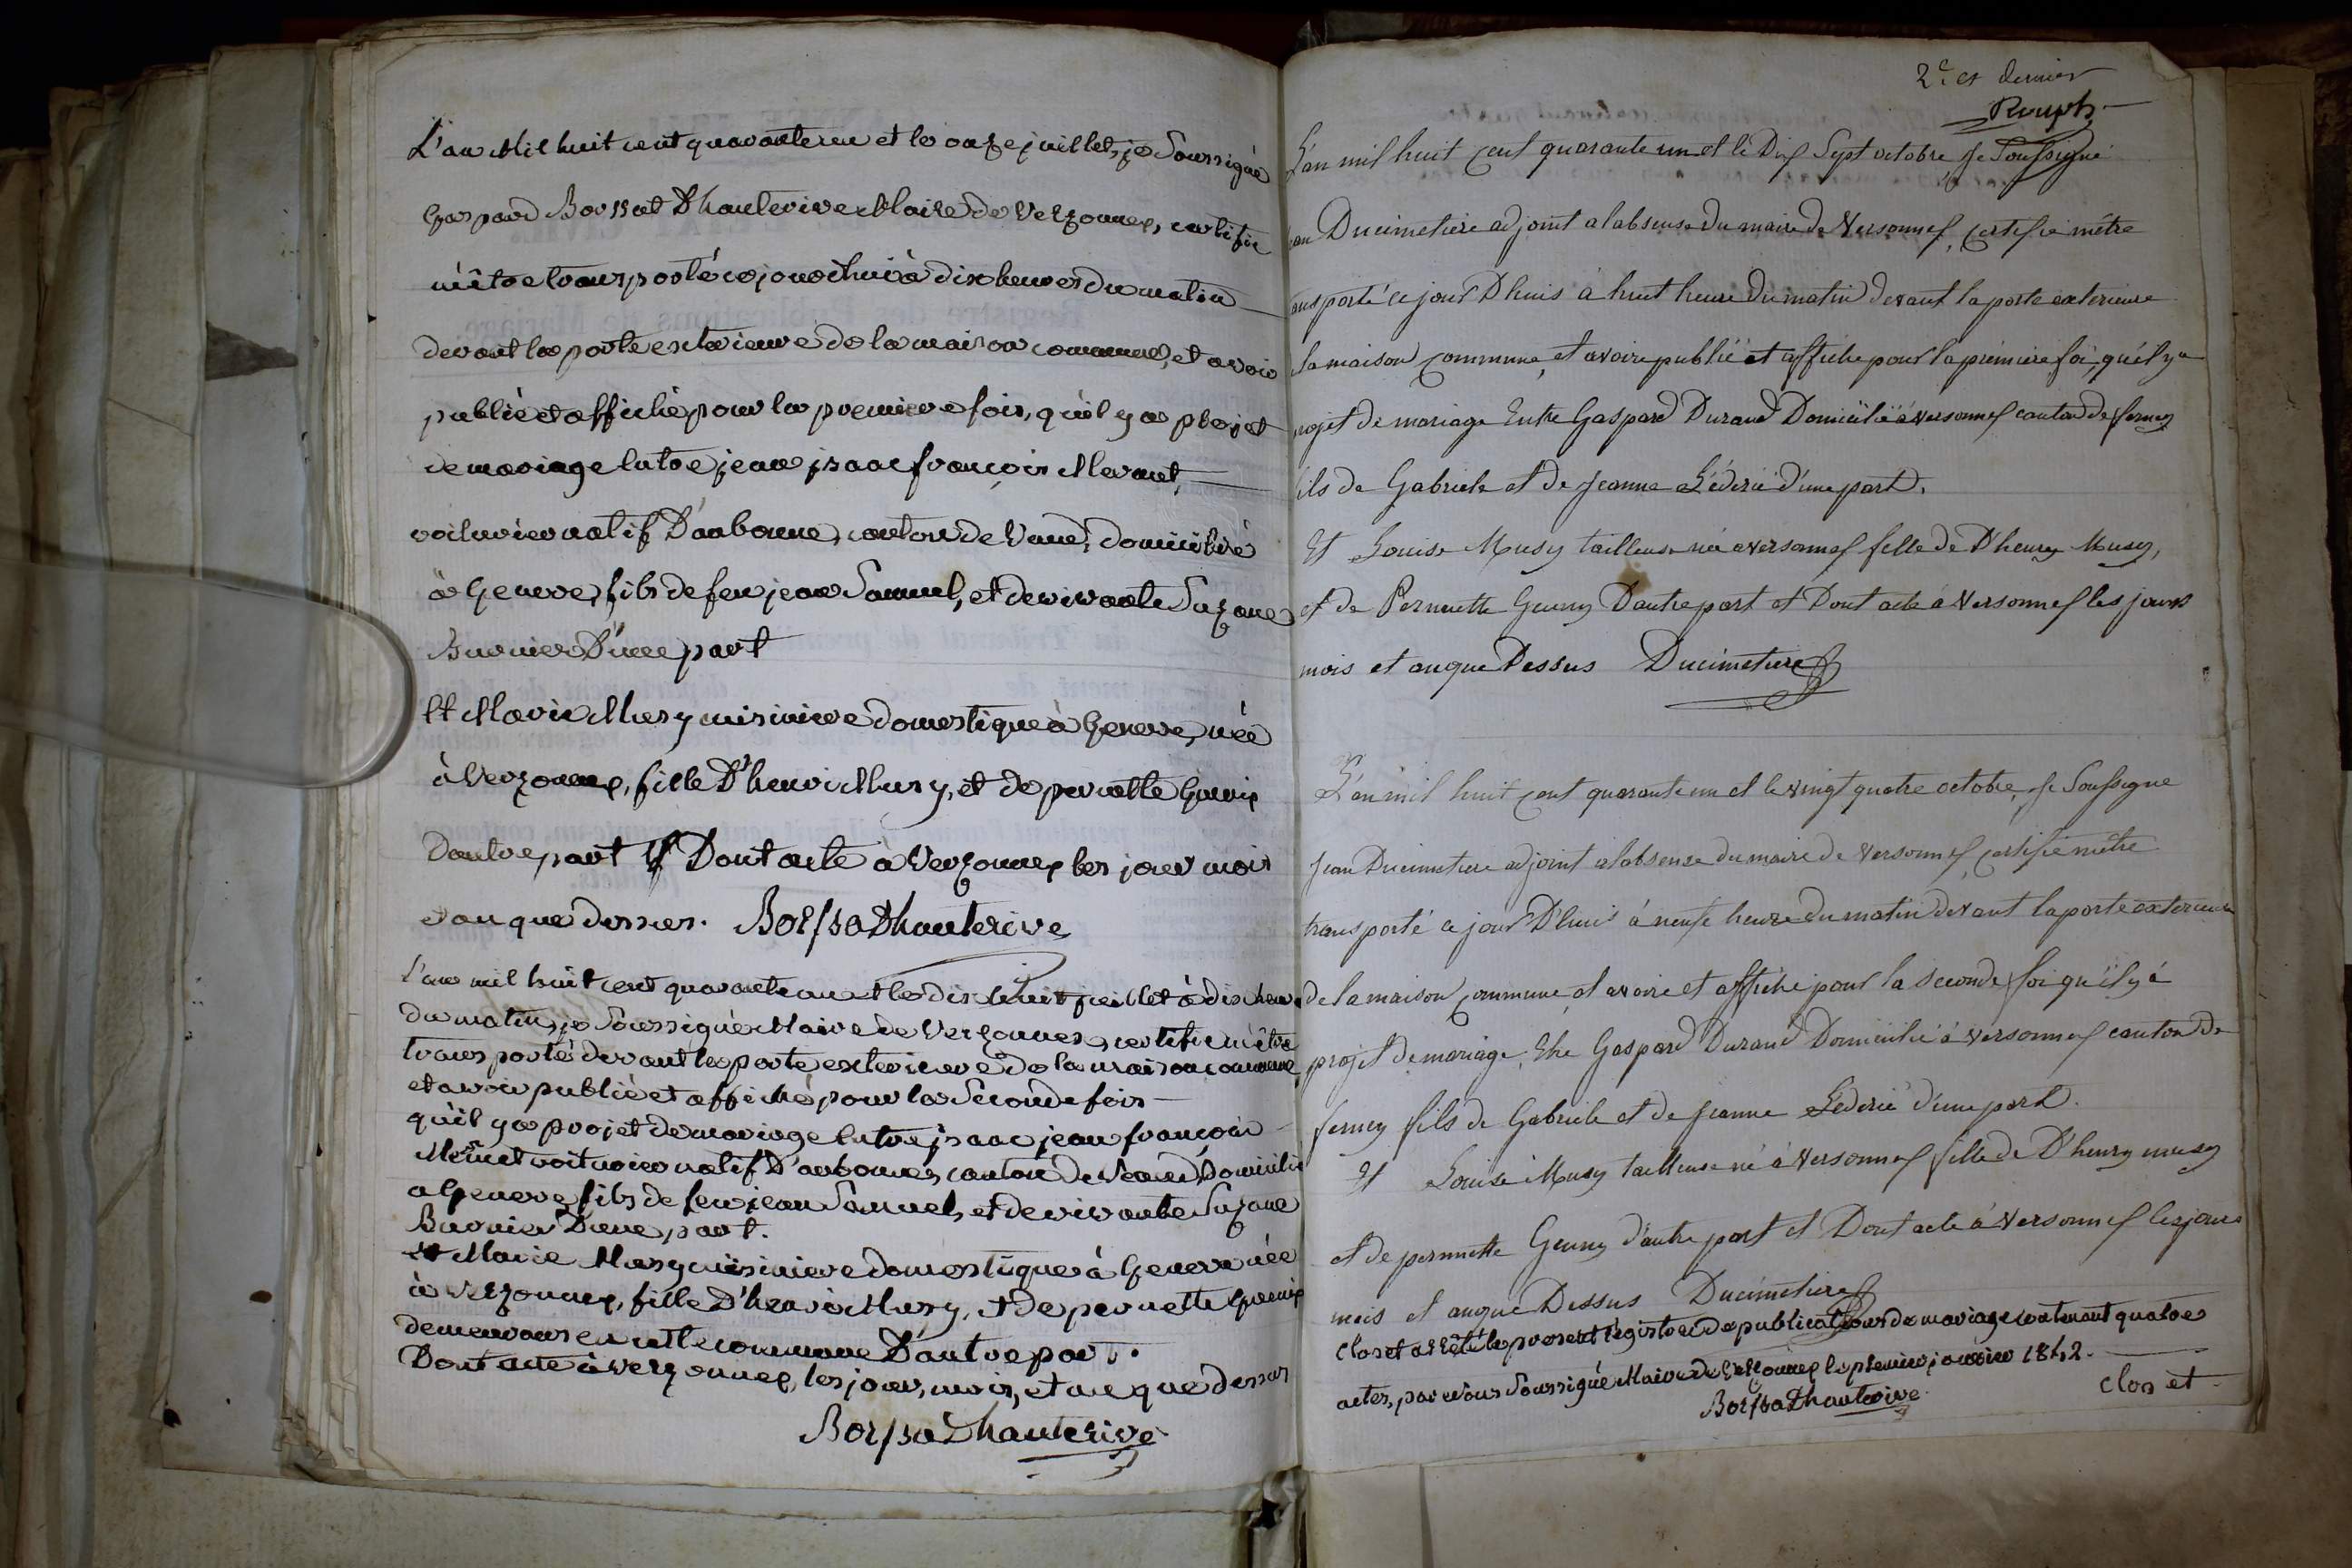 L'an Mil huit cent quarante un et le onze juillet, je Soussigné
Gaspard Borssat D'hauterive Maire de Verzonnex, certifie
m'être transporté ce jourd'hui à dix heures du matin
devant la porte exterieure de la maison commune, et avoir
publié et affiché pour la premiere fois, qu'il y a projet
de mariage Entre jean jsaac françois Mermet,
voiturier natif D'aubonne, canton de Vaud, domicilié
à Geneve, fils de feu jean Samuel, et de vivante Suzane
Burnier D'une part
Et Marie Musy cuisiniere domestique à Geneve, née
à Verzonnex, fille D'henri Musy, et de pernette Genix
Dautre part Dont acte à Verzonnex les jour mois
et an que dessus. Borssa Dhauterive
L'an mil huit cent quarante un et le dix huit juillet à dix heures
du matin, je Soussigné Maire de Verzonnex, certifie m'être
transporté devant la porte exterieure de la maison commune,
et avoir publié et affiché pour la Seconde fois
qu'il y a projet de mariage Entre jsaac jean françois
Mermet voiturier natif D'aubonne, canton de Vaud, Domicilié
a Geneve fils de feu jean Samuel, et de vivante Suzane
Burnier D'une part.
Et Marie Musy cuisiniere domestique à Geneve née
à Verzonnex, fille D'henri Musy, et de pernette Genix
demeurans en cette commune D'autre part.
Dont acte à Verzonnex, les jour, mois, et an que dessus
Borssa Dhauterive
2e. et dernier
Rouph
L'an mil huit cent quarante un et le Dix Sept octobre Je Soussigné
Ducimetiere adjoint a labsense du maire de Versonnex, certifie mêtre
ansporté ce jour D'huis à huit heure du matin devant la porte exterieure
la maison commune, et avoire publié et affiché pour la premiere foi, qu'il y a
rojet de mariage Entre Gaspard Durand Domicilié à versonnex canton de ferney
fils de Gabriele et de Jeanne Léderié d'une part.
Et Louise Musy tailleuse née a versonnex fille de D'henry Musy,
et de Pernette Genny Dautre part et Dont acte à Versonnex les jours
mois et an que Dessus Ducimetiere
L'an mil huit cent quarante un et le vingt quatre octobre, Je Soussigne
Jean Ducimetiere adjoint a labsense du maire de versonnex certifie mêtre
transporté ce jour D'huis à neufe heure du matin devant la porte exterieure
de la maison commune, et avoire et affiché pour la seconde foi qu'il y à
projet de mariage Etre Gaspard Durand Domicilié à versonnex canton de
ferney fils de Gabriele et de Jeanne Léderié d'une part.
Et Louise Musy tailleuse né à Versonnex fille de D'henry musy
et de pernette Genny d'autre part et Dont acte à Versonnex les jours
mois et an que Dessus Ducimetiere
Clos et arrêté le present registre de publications de mariage contenant quatre
actes, par Nous Soussigné Maire de Verzonnex le premier janvier 1842.
Borssa Dhauterive
Clos et